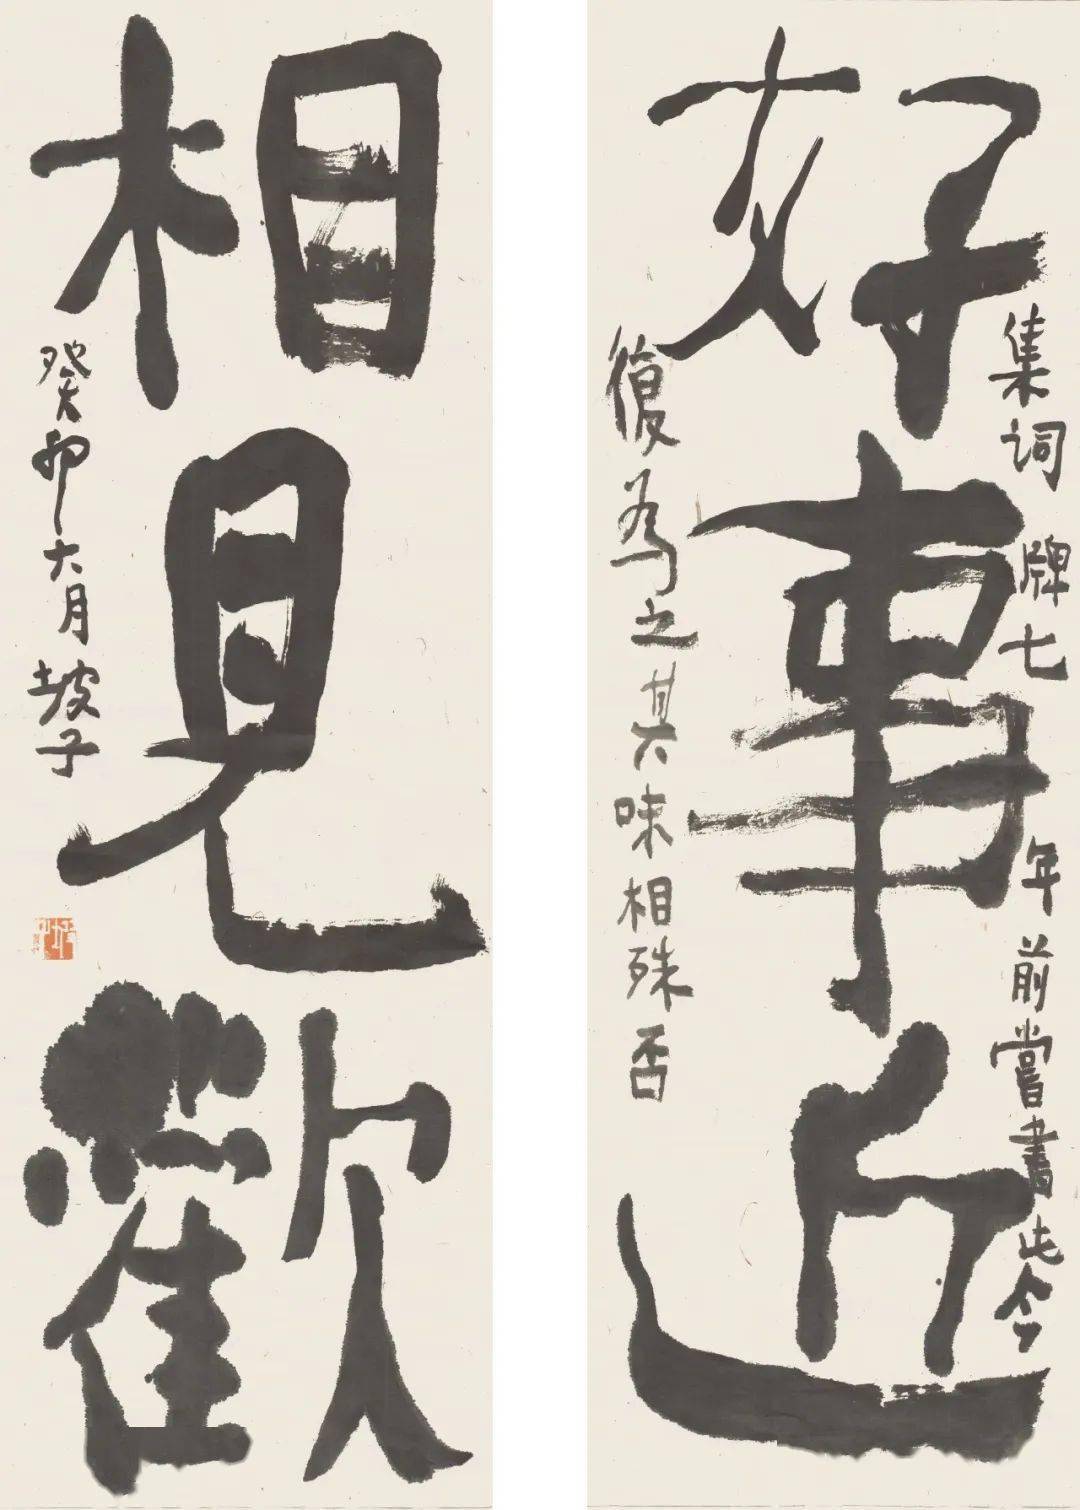 好事近
集词牌七年前嘗書此今
復为之其味相殊否
相見歡
癸卯六月坡子